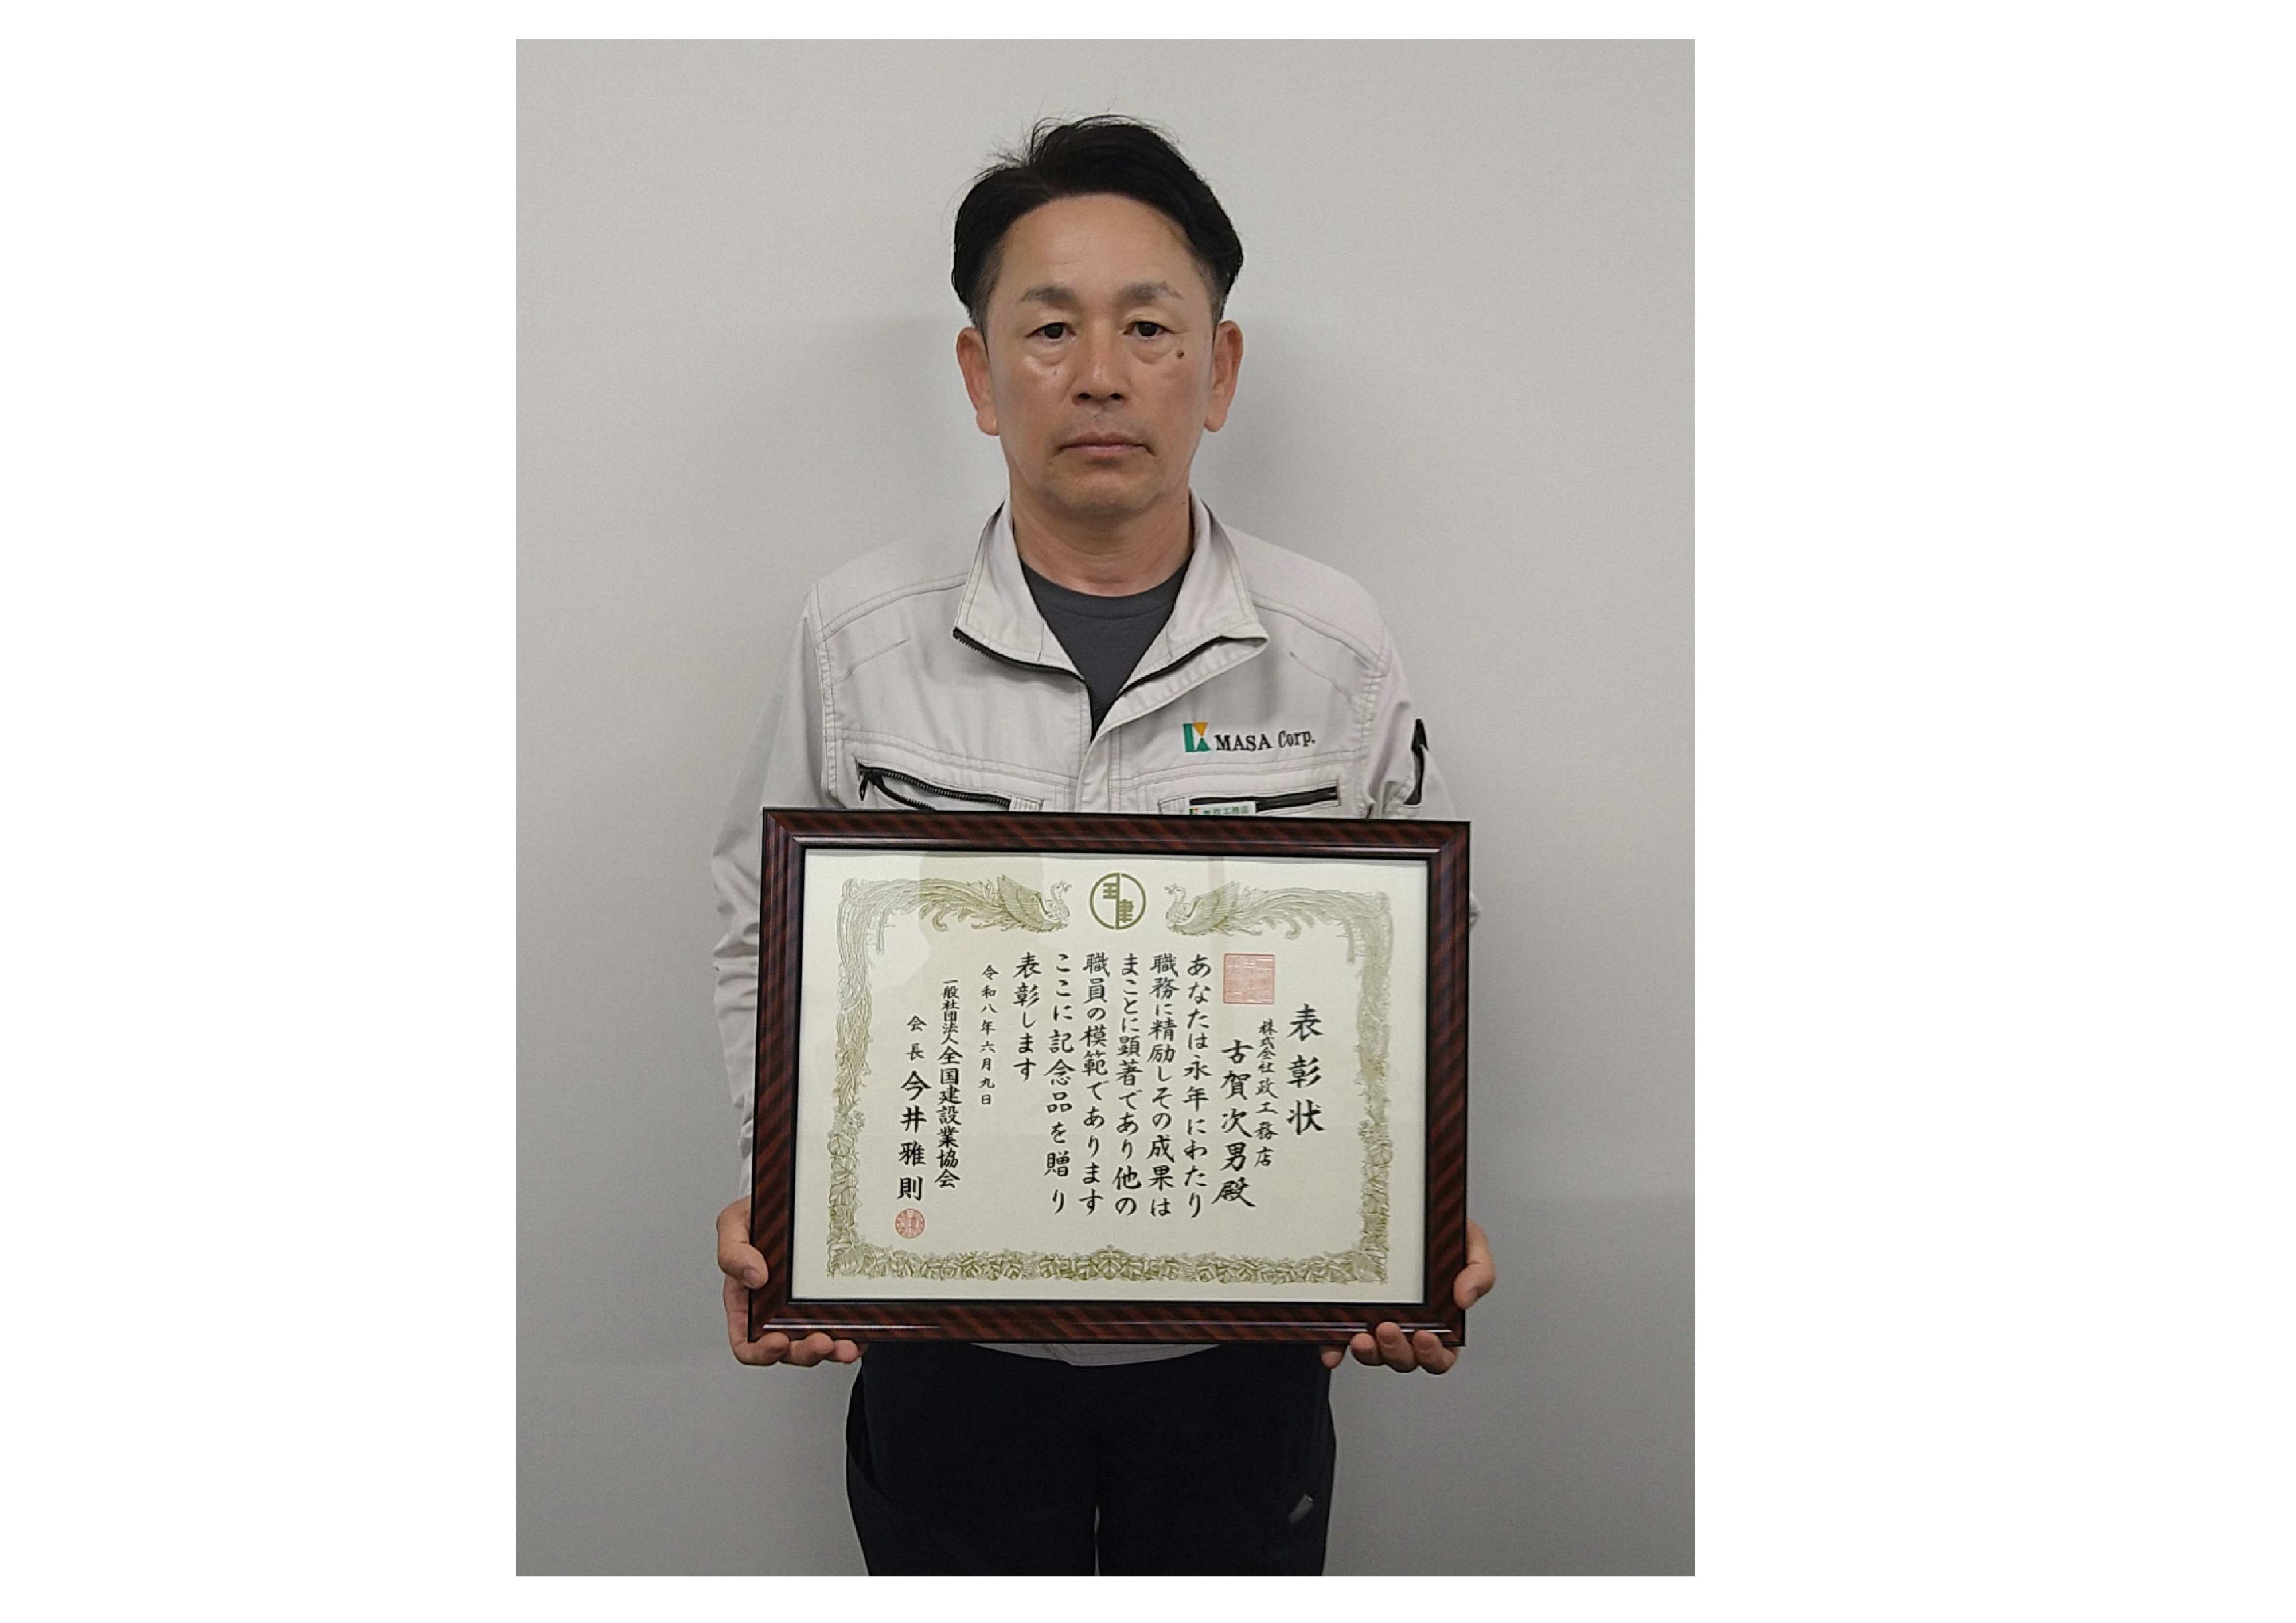 MASA Corp.
表彰状
株式会社政工務店
古賀次男殿
あなたは永年にわたり
職務に精励しその成果は
まことに顕著であり他の
職員の模範であります
ここに記念品を贈り
表彰します
令和八年六月九日
一般社団法人全国建設業協会
会長今井雅則